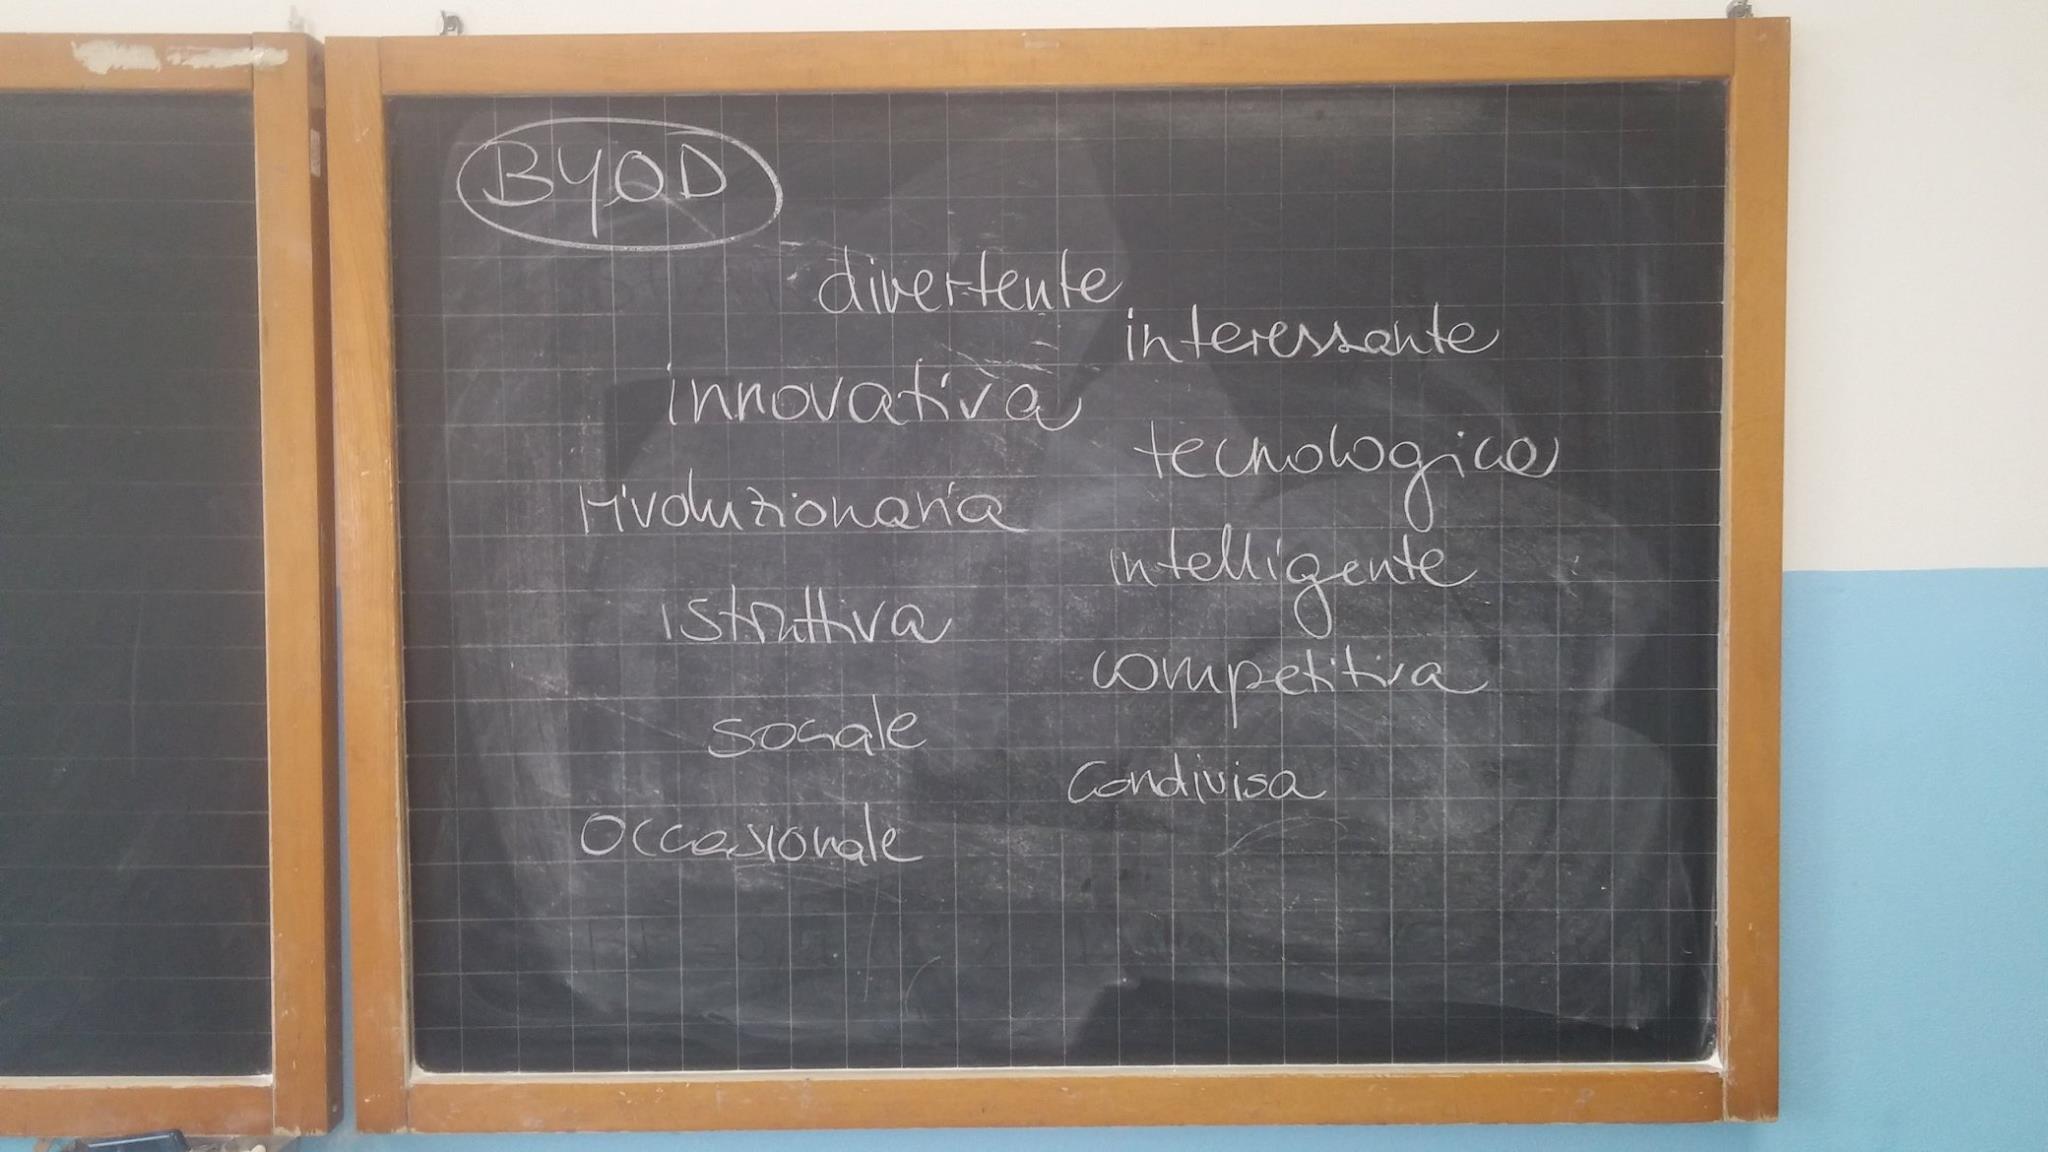 BYOD
divertente
interessante
innovativa
tecnologica
rivoluzionaria
intelligente
istruttiva
competitiva
sociale
condivisa
occasionale